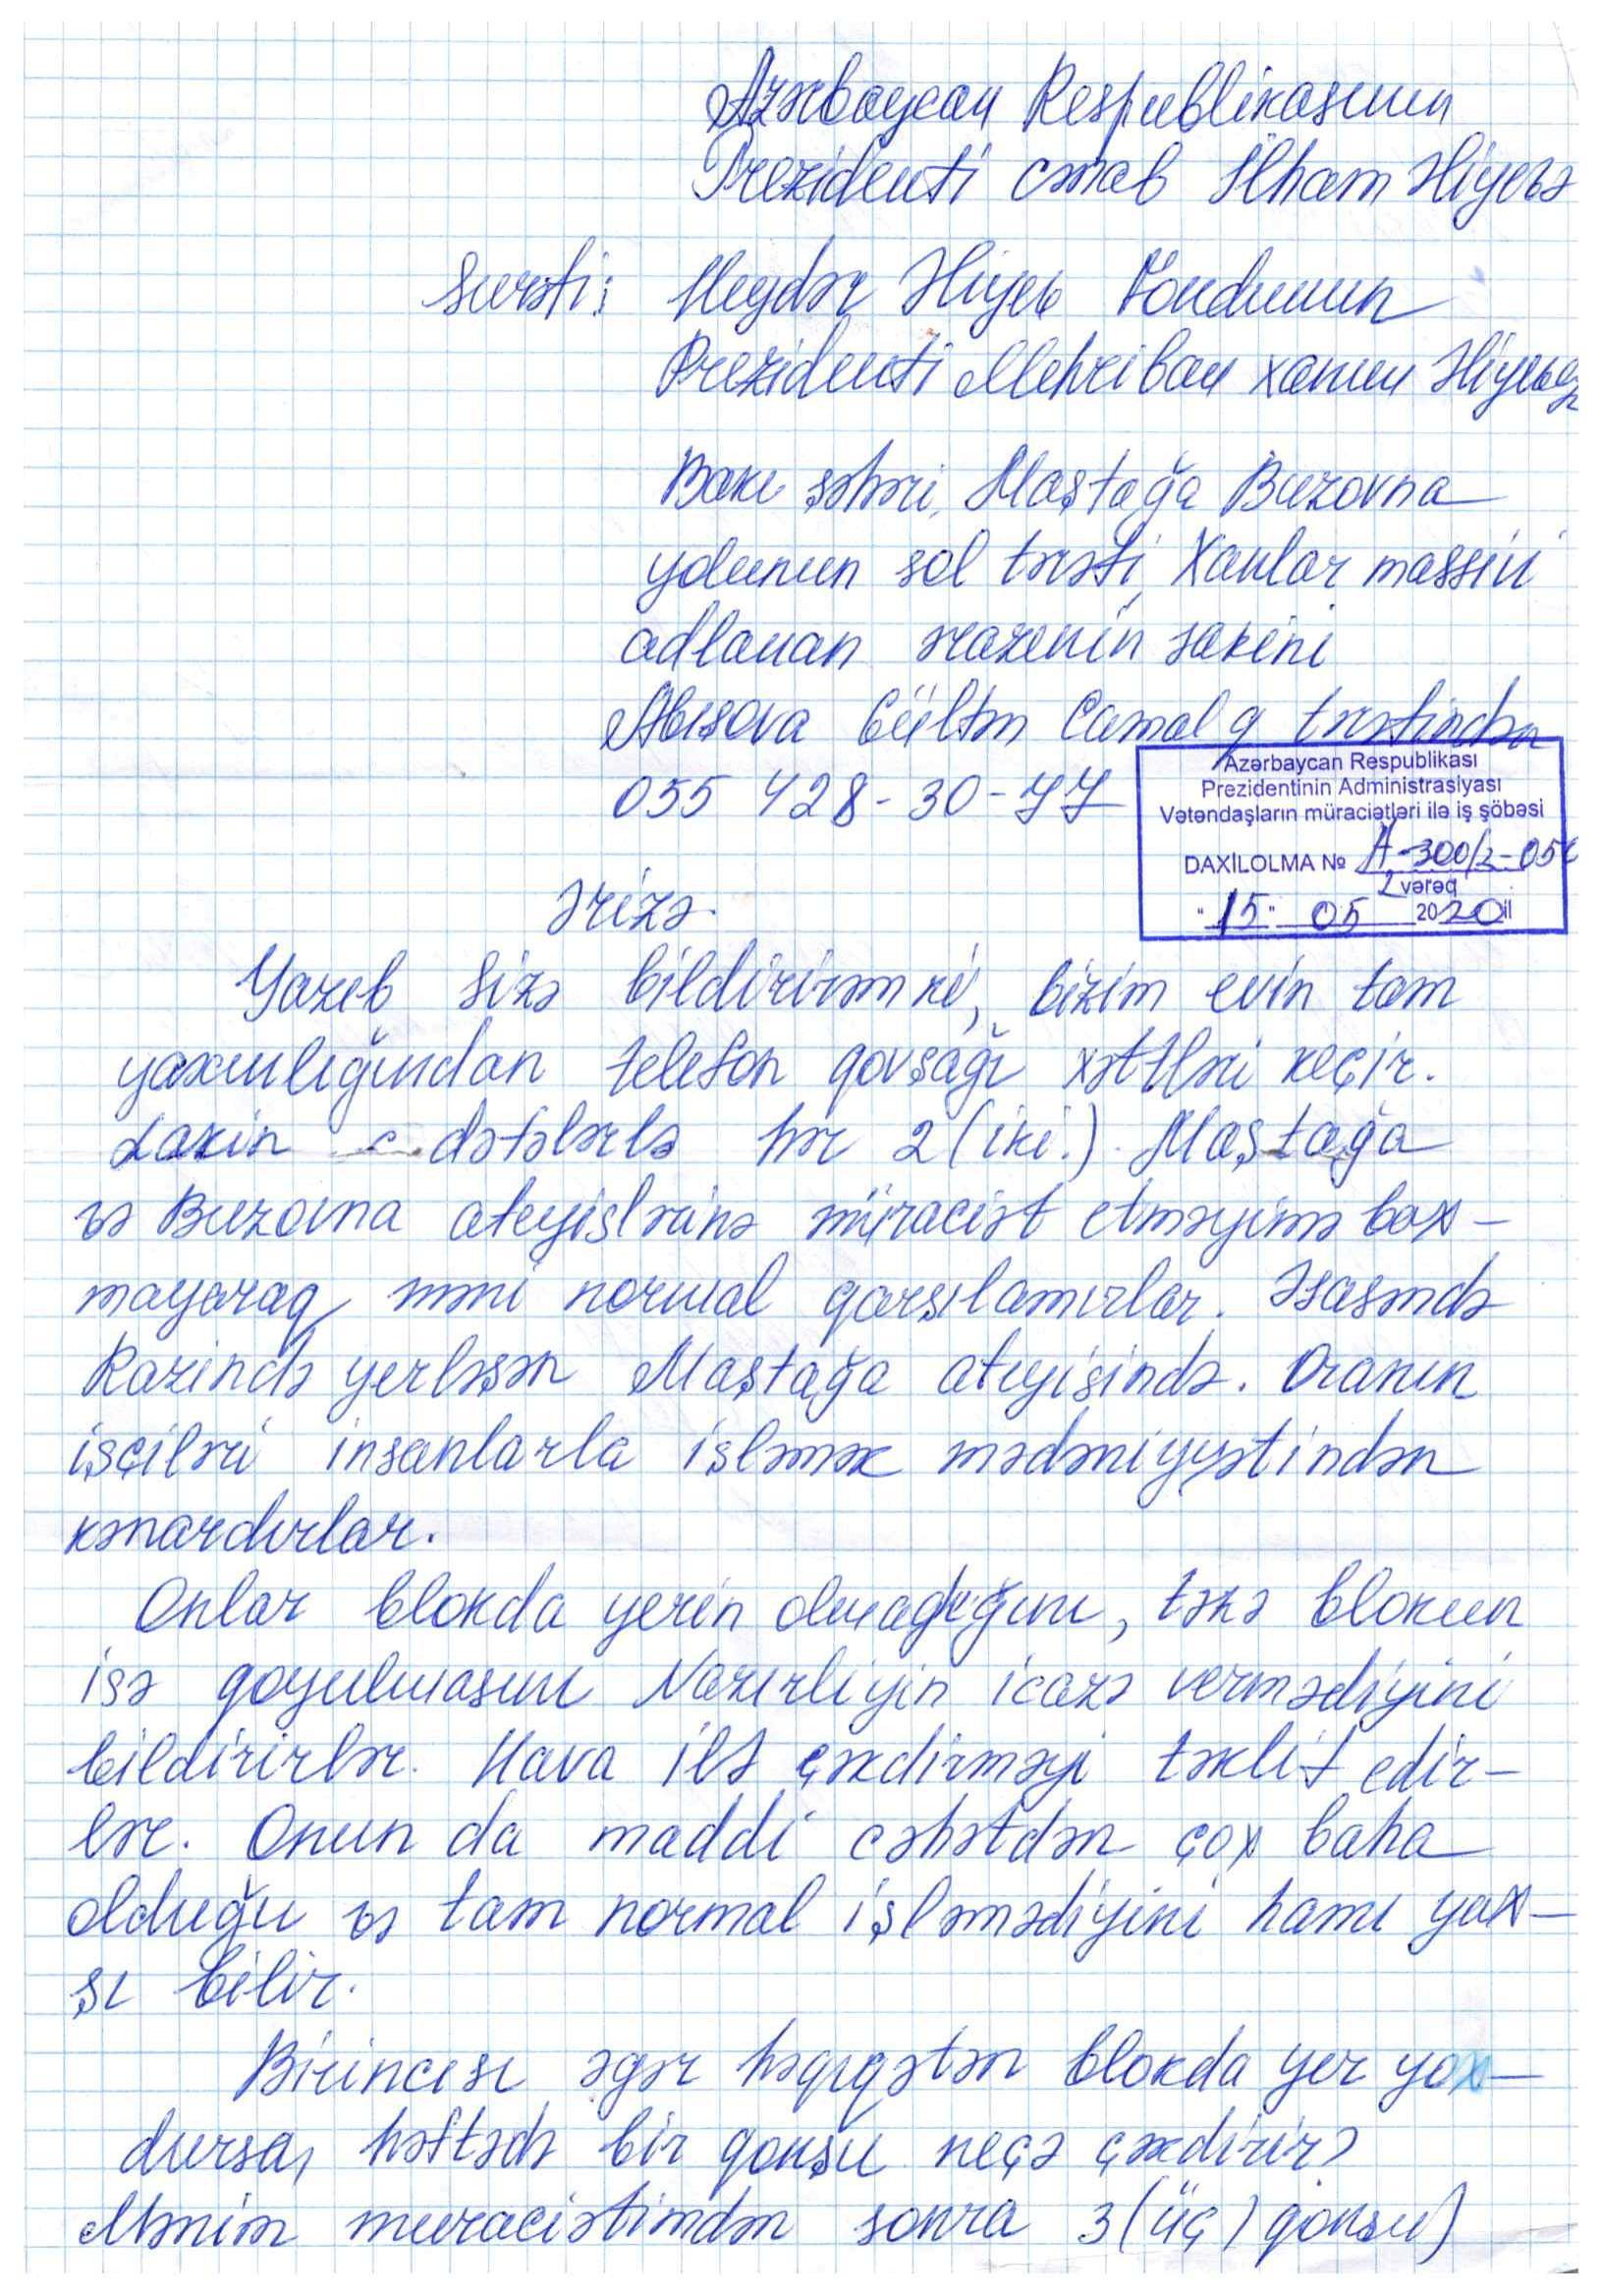 Azərbaycan Respublikasının
Prezidenti cənab İlham Əliyevə
Surəti: Heydər Əliyev Fondunun
Prezidenti Mehriban xanım Əliyevaya
Bakı şəhəri, Maştağa Buzovna
yolunun sol tərəfi, Xanlar massivi
adlanan ərazinin sakini
Abışova Gültən Camal q tərəfindən
055 428-30-77
Azərbaycan Respublikası
Prezidentinin Administrasiyası
Vətəndaşların müraciətləri ilə iş şöbəsi
DAXİLOLMA № A-300/2-05
2 vərəq
"15" 05 2020 il
Ərizə
Yazıb Sizə bildirirəm ki, bizim evin tam
yaxınlığından telefon qovşağı xəttləri keçir.
Lakin dəfələrlə hər 2 (iki.) Maştağa
və Buzovna ateyislərinə müraciət etməyimə bax-
mayaraq məni normal qarşılamırlar. Əsasəndə
Razində yerləşən Maştağa ateyisində. Oranın
işçiləri insanlarla işləmək mədəniyyətindən
kənardırlar.
Onlar blokda yerin olmadığını, təzə blokun
işə qoyulmasını Nazirliyin icazə vermədiyini
bildirirlər. Hava ilə çəkdirməyi təklif edir-
lər. Onun da maddi cəhətdən çox baha
olduğu və tam normal işləmədiyini hamı yax-
şı bilir.
Birincisi əgər həqiqətən blokda yer yox-
dursa, həftədə bir qonşu neçə çəkdirir?
Mənim muraciətimdən sonra 3 (üç) qonşu